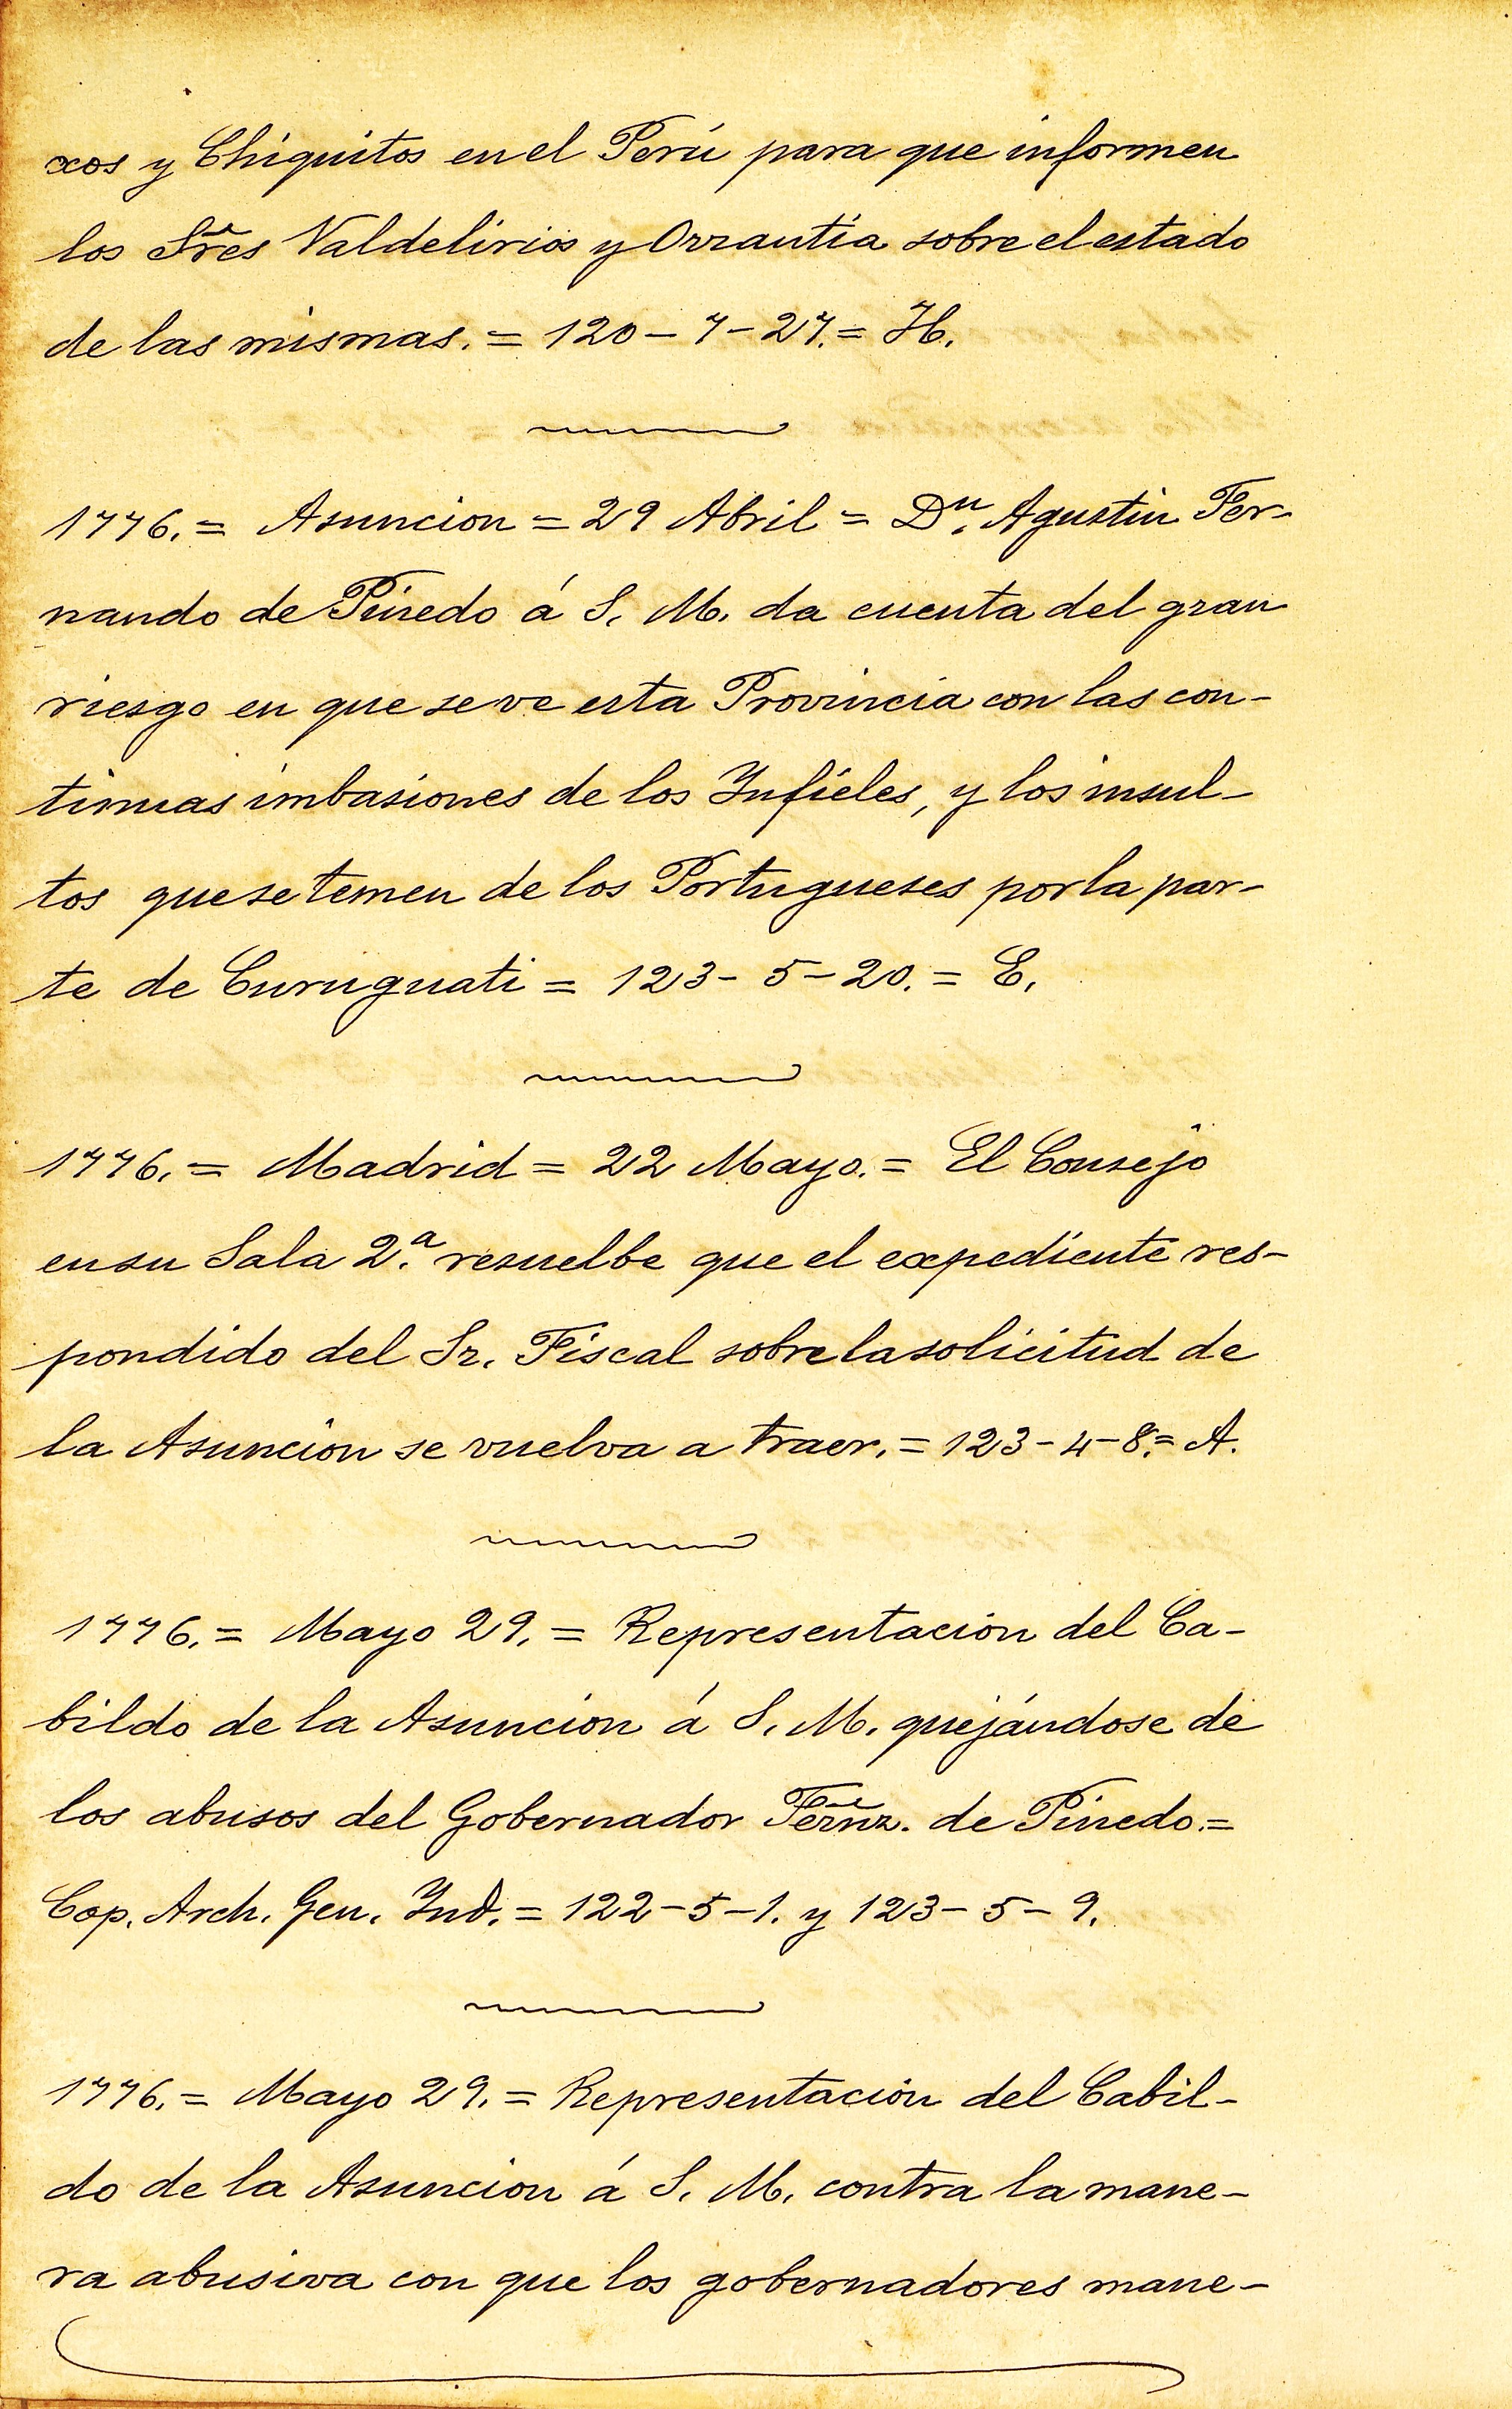 xos y Chiquitos en el Perú para que informen
los Sr̃es Valdelirios y Orrantia sobre el estado
de las mismas. = 120 - 7 - 27. = H.
1776. = Asuncion = 29 Abril = Dn. Agustin Fer-
nando de Pinedo á S. M. da cuenta del gran
riesgo en que se ve esta Provincia con las con-
tinuas imbasiones de los Infieles, y los insul-
tos que se temen de los Portugueses por la par-
te de Curuguati = 123 - 5 - 20. = E.
1776. = Madrid = 22 Mayo. = El Consejo
en su Sala 2.ª resuelbe que el expediente res-
pondido del Sr. Fiscal sobre la solicitud de
la Asuncion se vuelva a traer. = 123 - 4 - 8. = A.
1776. = Mayo 29. = Representacion del Ca-
bildo de la Asuncion á S. M. quejándose de
los abusos del Gobernador Fer̃nz. de Pinedo. =
Cop. Arch. Gen. Ind. = 122 - 5 - 1. y 123 - 5 - 9.
1776. = Mayo 29. = Representación del Cabil-
do de la Asuncion á S. M. contra la mane-
ra abusiva con que los gobernadores mane-